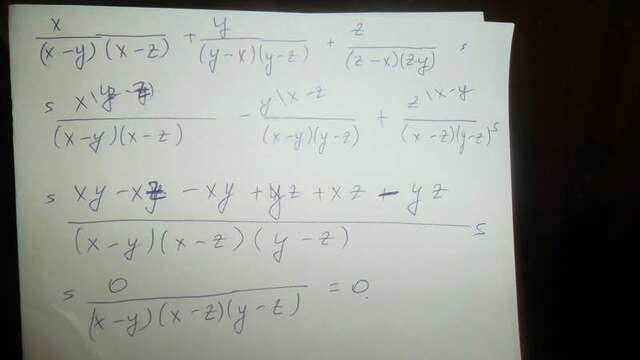 x/((x-y)(x-z)) + y/((y-x)(y-z)) + z/((z-x)(zy)) s
s x\y-z/((x-y)(x-z)) - y\x-z/((x-y)(y-z)) + z\x-y/((x-z)(y-z)) s
s (xy-xz-xy+yz+xz-yz)/((x-y)(x-z)(y-z)) s
s 0/((x-y)(x-z)(y-z)) = 0.